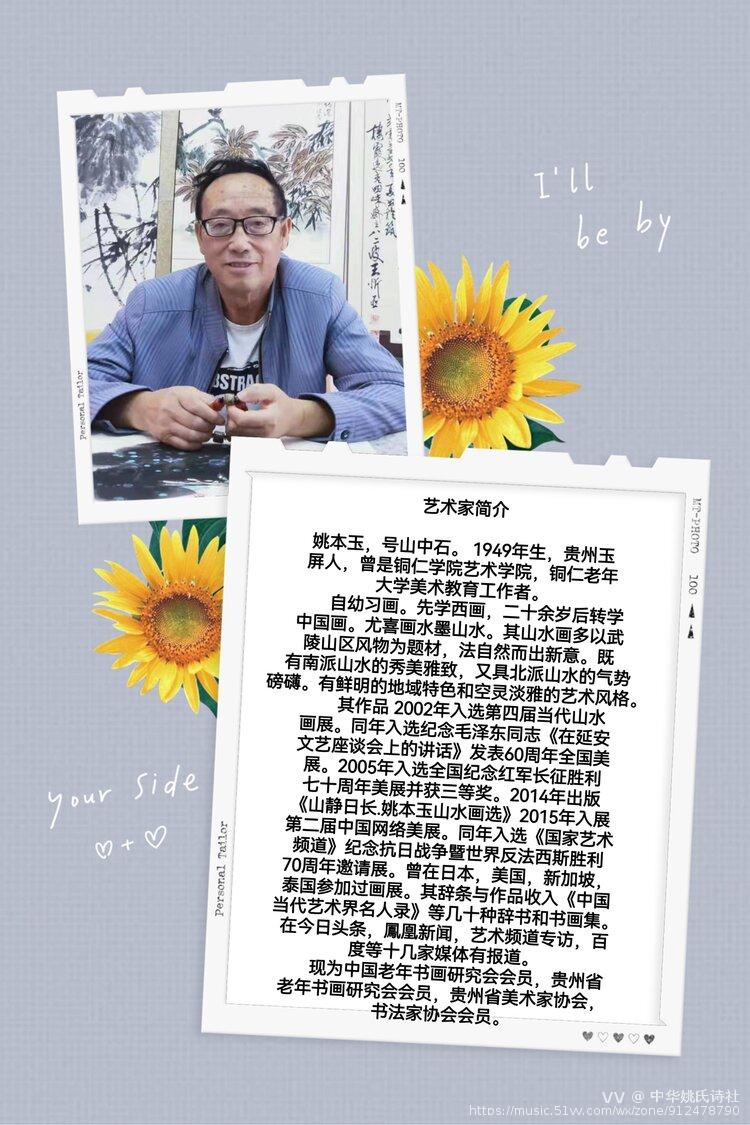 MT-PHOTO 100
Personal Tailor
ABSTRAC
I'll
be by
艺术家简介
姚本玉，号山中石。 1949年生，贵州玉
屏人，曾是铜仁学院艺术学院，铜仁老年
大学美术教育工作者。
自幼习画。先学西画，二十余岁后转学
中国画。尤喜画水墨山水。其山水画多以武
陵山区风物为题材，法自然而出新意。既
有南派山水的秀美雅致，又具北派山水的气势
磅礴。有鲜明的地域特色和空灵淡雅的艺术风格。
其作品 2002年入选第四届当代山水
画展。同年入选纪念毛泽东同志《在延安
文艺座谈会上的讲话》发表60周年全国美
展。2005年入选全国纪念红军长征胜利
七十周年美展并获三等奖。2014年出版
《山静日长.姚本玉山水画选》2015年入展
第二届中国网络美展。同年入选《国家艺术
频道》纪念抗日战争暨世界反法西斯胜利
70周年邀请展。曾在日本，美国，新加坡，
泰国参加过画展。其辞条与作品收入《中国
当代艺术界名人录》等几十种辞书和书画集。
在今日头条，鳳凰新闻，艺术频道专访，百
度等十几家媒体有报道。
现为中国老年书画研究会会员，贵州省
老年书画研究会会员，贵州省美术家协会，
书法家协会会员。
MT-PHOTO 100
Personal Tailor
your side
VV @ 中华姚氏诗社
https://music.51vv.com/wx/zone/912478790